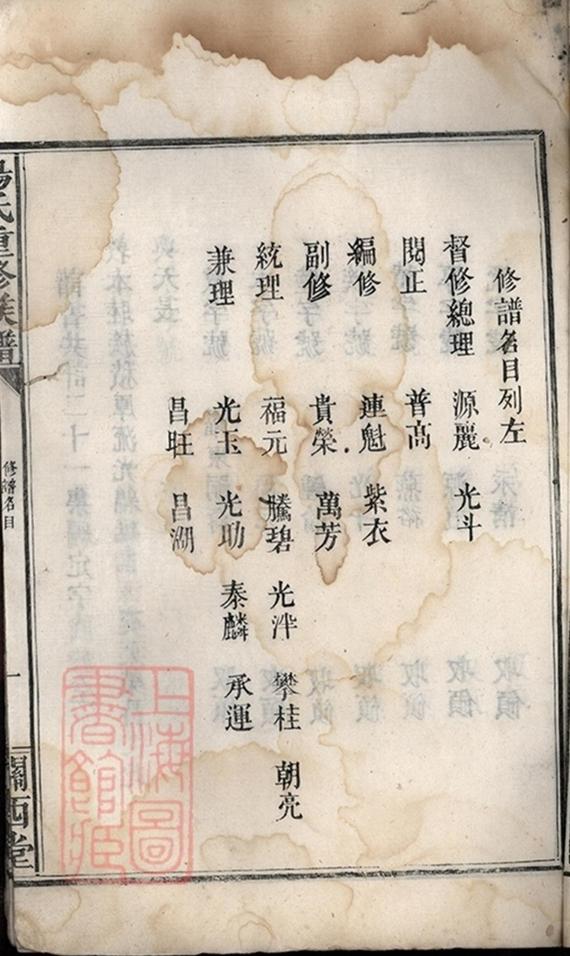 修譜名目列左
督修總理 源麗 光斗
閱正 普高
編修 連魁 紫衣
副修 貴榮 萬芳
統理 福元 騰碧 光泮 攀桂 朝亮
兼理 光玉 光助 泰麟 承運
昌旺 昌湖
楊氏重修族譜
修譜名目
一
關西堂
上海圖書館藏